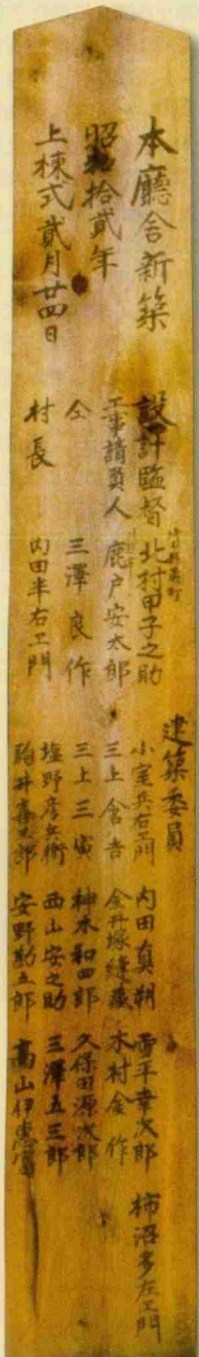 本廳舎新築
昭和拾貳年
上棟式貳月廿四日
設計監督 北村甲子之助
工事請負人 鹿戸安太郎
仝 三澤良作
村長 内田半右エ門
建築委員
小室兵右エ門 内田真朔 雷平幸次郎 柿沼多左エ門
三上倉吉 金井塚縫蔵 木村金作
三上三寅 神木和四郎 久保田源次郎
塩野彦兵衛 西山安之助 三澤五三郎
駒井喜四郎 安野勘五郎 高山伊惠